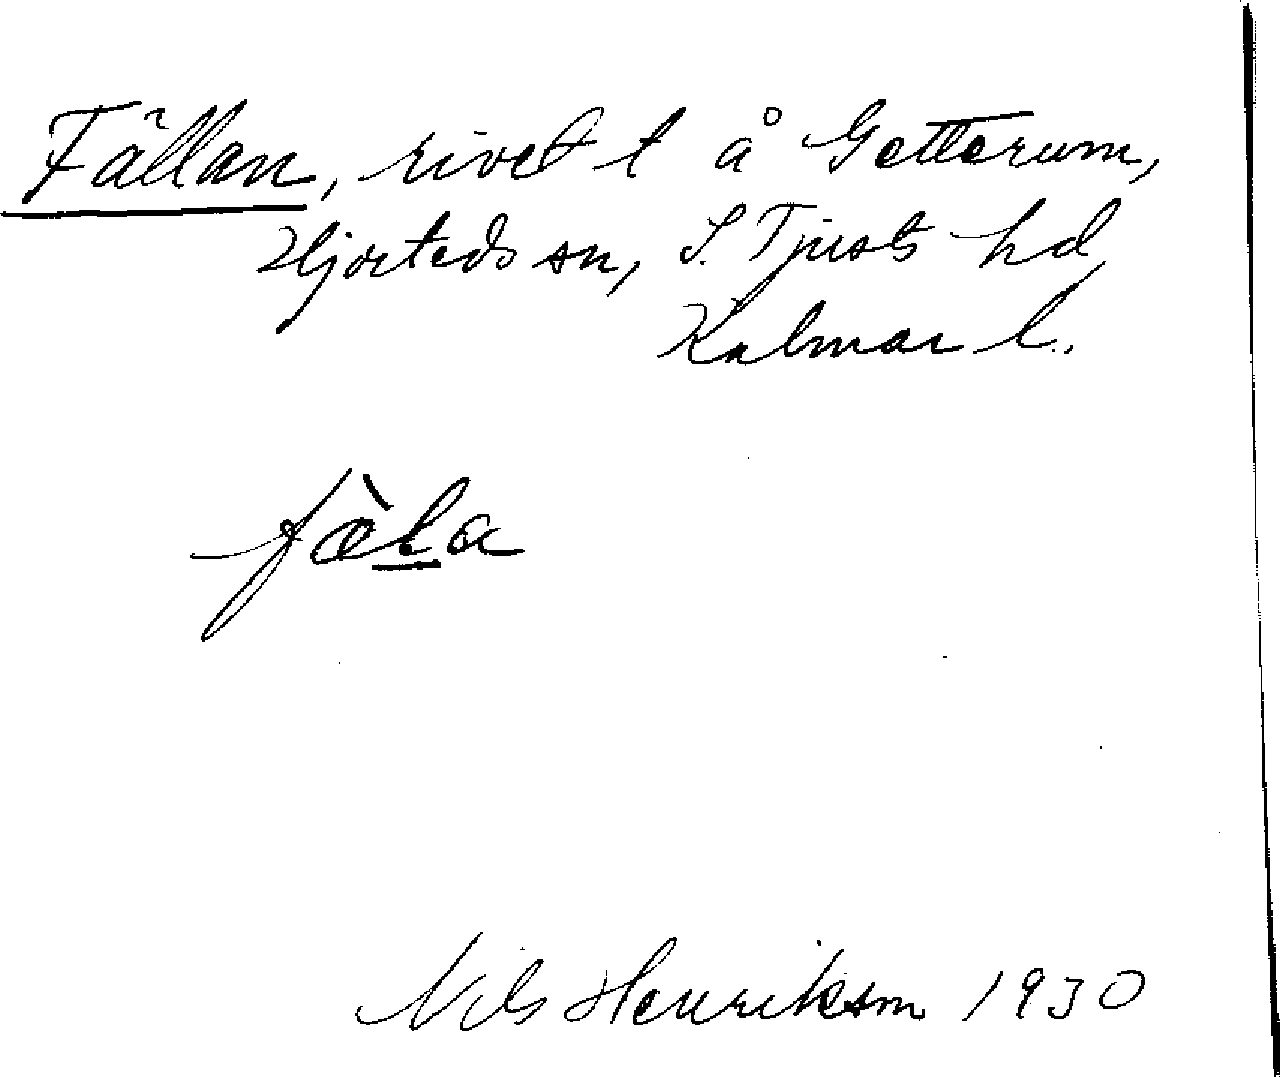 Fällan, rivet t å Getterum,
Hjorteds sn, S. Tjusts hd,
Kalmar l.
fæ̀la
Nils Henriksson 1930